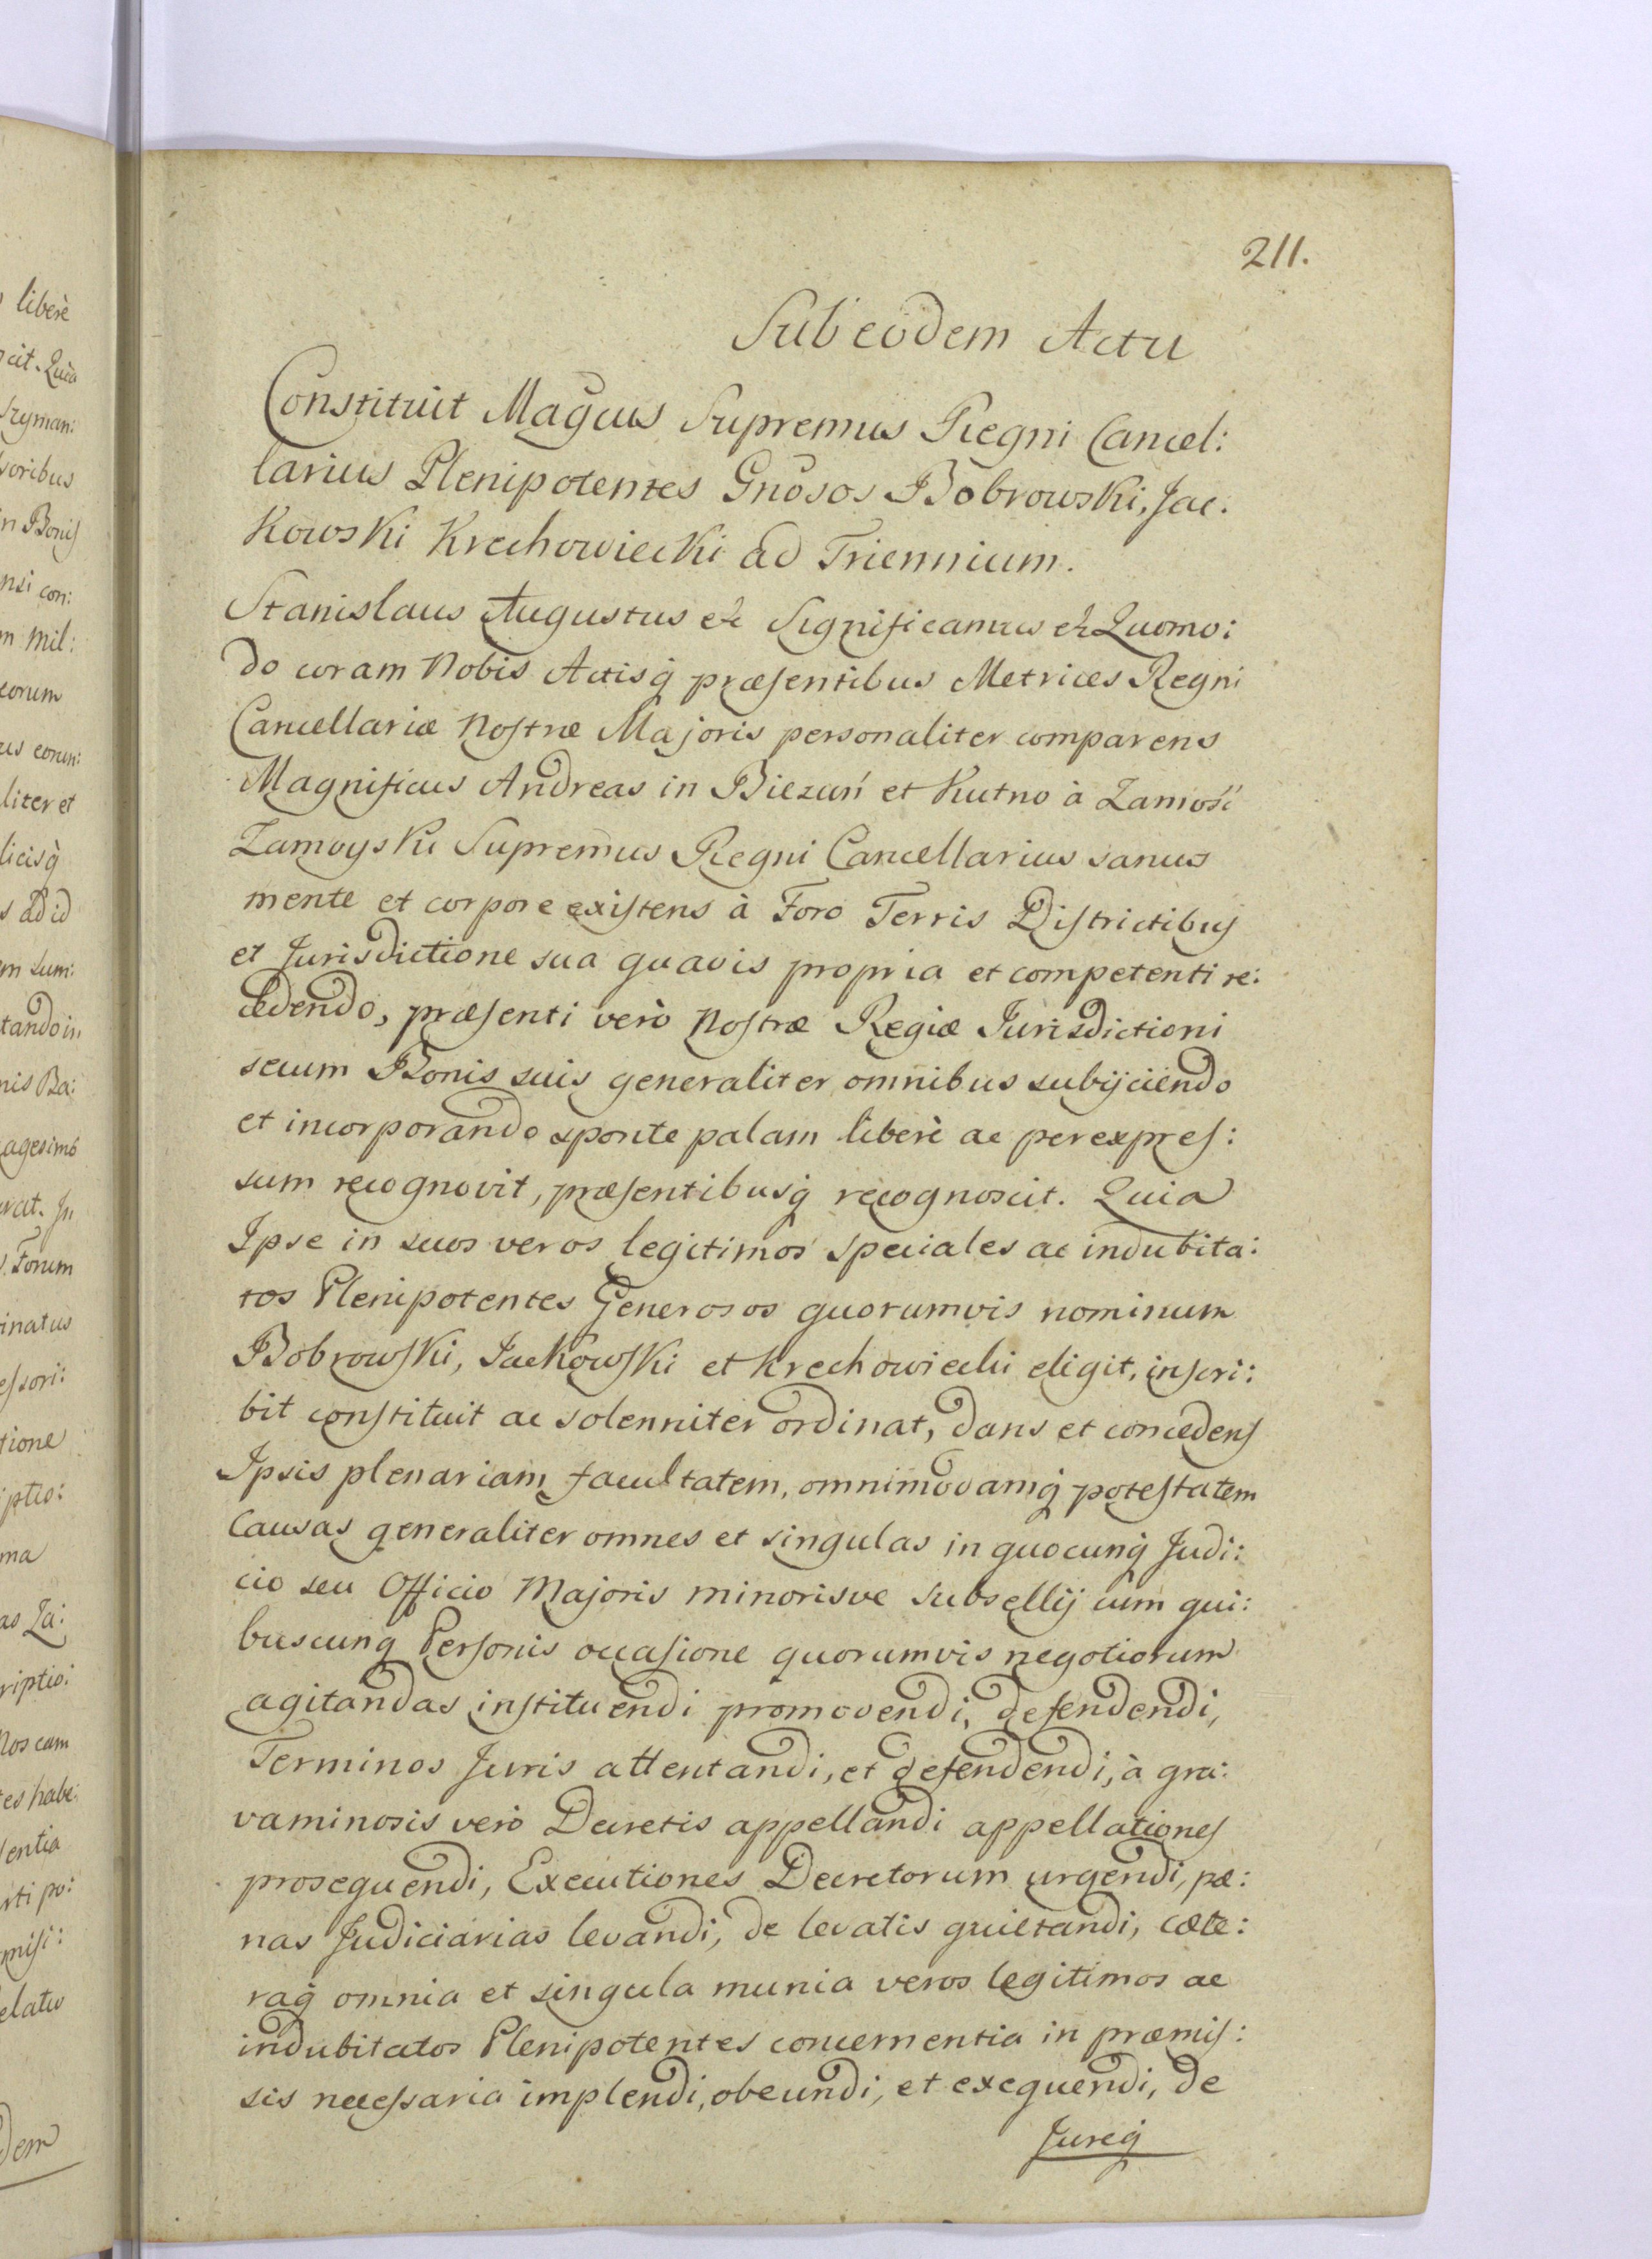 211.
Sub eodem Actu
Constituit Magcus Supremus Regni Cancel:
larius Plenipotentes Gnosos Bobrowski, Jac:
kowski Krechowiecki ad Triennium.
Stanislaus Augustus &c Significamus &c Quomo:
do coram Nobis Actisq́ præsentibus Metrices Regni
Cancellariæ Nostræ Majoris personaliter comparens
Magnificus Andreas in Biezuń et Kutno à Zamość
Zamoyski Supremus Regni Cancellarius sanus
mente et corpore existens à Foro Terris Districtibus
et Jurisdictione sua quavis propria et competenti re:
cedendo, præsenti verò Nostræ Regiæ Jurisdictioni
secum Bonis suis generaliter omnibus subijciendo
et incorporando sponte palam liberè ac per expres:
sum recognovit, præsentibusq́ recognoscit. Quia
Ipse in suos veros legitimos speciales ac indubita:
tos Plenipotentes Generosos quorumvis nominum
Bobrowski, Jackowski et Krechowiecki eligit, inscri:
bit constituit ac solenniter ordinat, dans et concedens
Ipsis plenariam facultatem, omnimodamq́ potestatem
Causas generaliter omnes et singulas in quocunq́ Judi:
cio seu Officio Majoris minorisve Subsellij cum qui:
buscunq́ Personis occasione quorumvis negotiorum
agitandas instituendi promovendi, defendendi,
Terminos Juris attentandi, et defendendi, à gra:
vaminosis verò Decretis appellandi appellationes
prosequendi, Executiones Decretorum urgendi, pæ:
nas Judiciarias levandi, de levatis quietandi, cæte:
raq́ omnia et singula munia veros legitimos ac
indubitatos Plenipotentes concernentia in præmis:
sis necessaria implendi, obeundi, et exequendi, de
Jureq́
liberè
cit. Quia
Szyman:
in Bonis
con:
Mil:
liter et
ad id
Forum
Nos eam